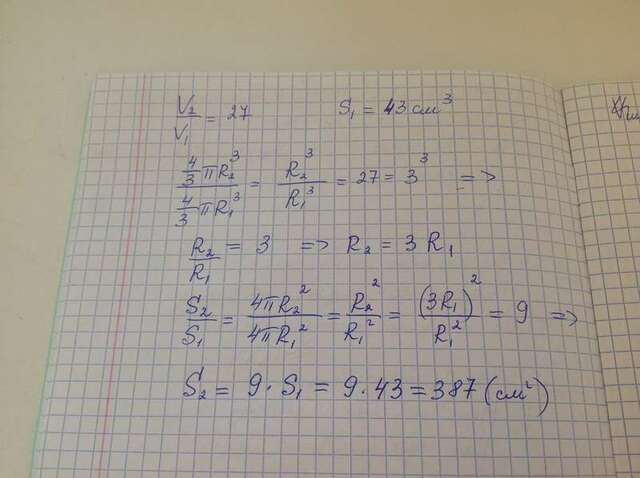 V₂/V₁ = 27 S₁ = 43 см³
(4/3 πR₂³)/(4/3 πR₁³) = R₂³/R₁³ = 27 = 3³ =>
R₂/R₁ = 3 => R₂ = 3 R₁
S₂/S₁ = 4πR₂²/4πR₁² = R₂²/R₁² = (3R₁)²/R₁² = 9 =>
S₂ = 9 · S₁ = 9 · 43 = 387 (см²)